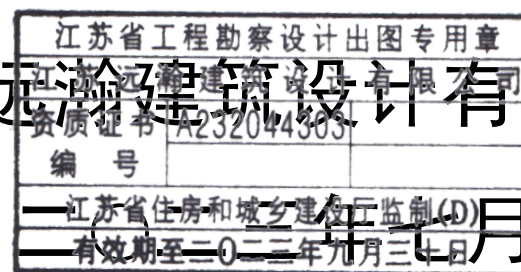 江苏省工程勘察设计出图专用章
江苏远瀚建筑设计有限公司
远瀚建筑设计有
资质证书 A232044303
编号
江苏省住房和城乡建设厅监制(D)
二〇二三年七月
有效期至二〇二三年九月三十日